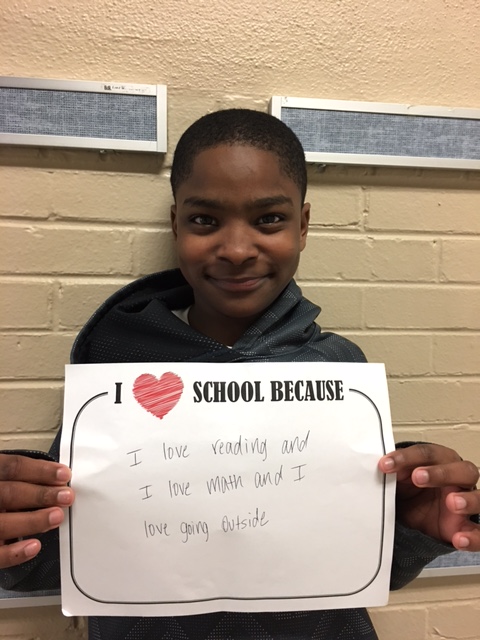 I ❤ SCHOOL BECAUSE
I love reading and
I love math and I
love going outside